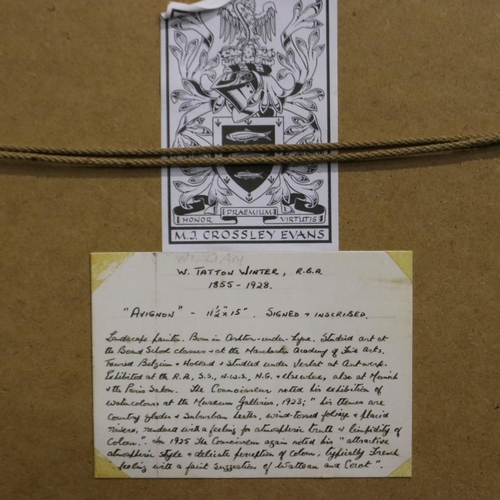 HONOR PRAEMIUM VIRTUTIS
M.J. CROSSLEY EVANS
W. TATTON WINTER, R.B.A
1855 - 1928.
"AVIGNON" - 11½" x 15". SIGNED + INSCRIBED.
Landscape painter. Born in Ashton-under-Lyne. Studied art at
the Board School classes + at the Manchester Academy of Fine Arts.
Toured Belgium + Holland + studied under Verlat at Antwerp.
Exhibited at the R.A., S.S., N.W.S., N.G. + elsewhere, also at Munich
+ the Paris Salon. The Connoisseur noted his exhibition of
watercolours at the Museum Galleries, 1923; "his themes are
country glades + suburban heaths, wind-tossed foliage + placid
rivers, rendered with a feeling for atmospheric truth + limpidity of
colour.". In 1925 The Connoisseur again noted his "attractive
atmospheric style + delicate perception of colour, typically French
feeling with a faint suggestion of Watteau and Corot".